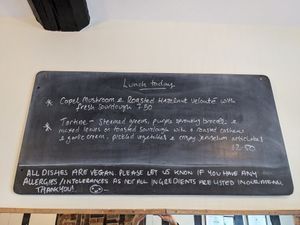 Lunch today
* Cepel Mushroom & Roasted Hazelnut velouté with
fresh sourdough 7.50
* Tartine - Steamed greens, purple sprouting broccoli &
mixed leaves on toasted sourdough with a roasted cashew
& garlic cream, pickled vegetables & crispy Jerusalem artichoke!
12.50
ALL DISHES ARE VEGAN. PLEASE LET US KNOW IF YOU HAVE ANY
ALLERGIES/INTOLERANCES AS NOT ALL INGREDIENTS ARE LISTED IN OUR MENU.
THANK YOU!